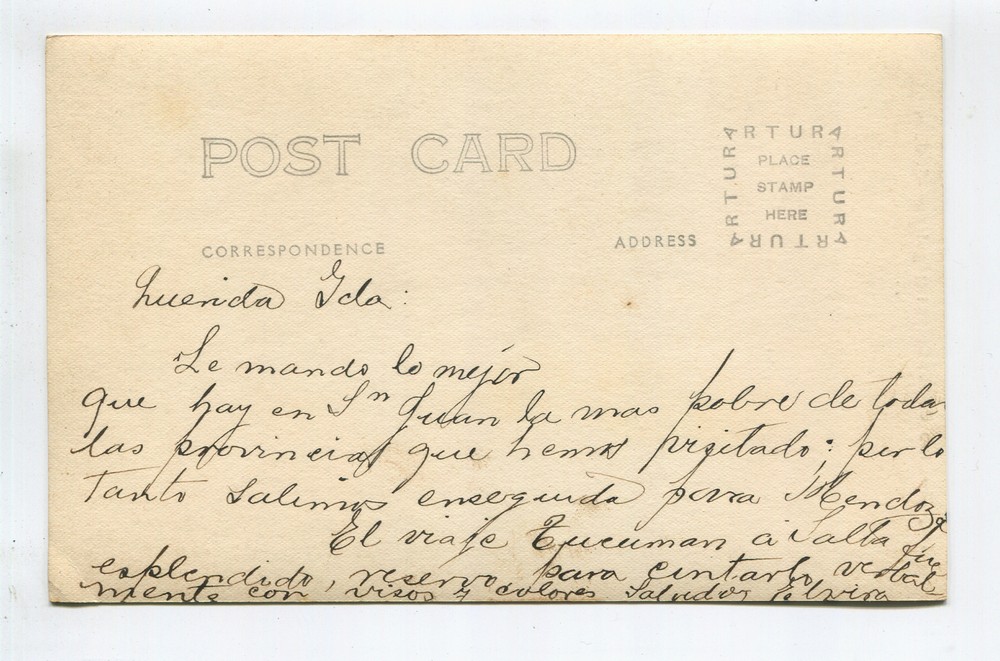 POST CARD
ARTURA
ARTURA
ARTURA
ARTURA
PLACE
STAMP
HERE
CORRESPONDENCE
ADDRESS
Querida Ida:
Le mando lo mejor
que hay en Sn Juan la mas pobre de todas
las provincias que hemos visitado; por lo
tanto salimos enseguida para Mendoza
El viaje Tucuman á Salta fue
esplendido, reservo para contarlo verbal
mente con visos y colores Elvira